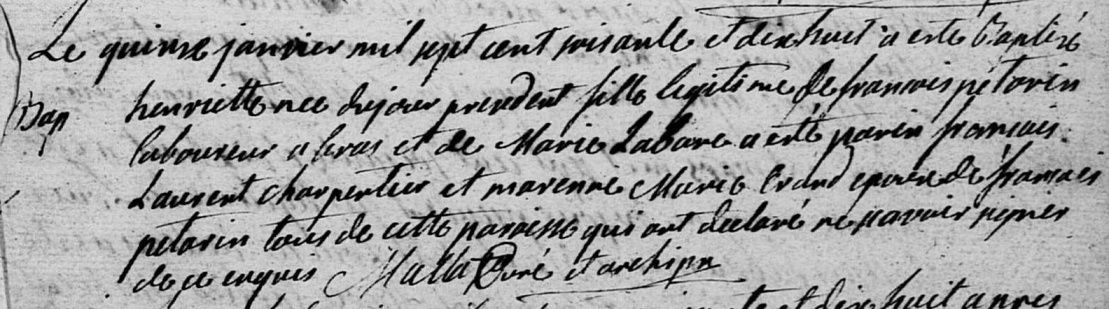 Le quinze janvier mil sept cent soisante et dix huit a este Baptisé
Bap henriette nee du jour precedent fille legitime de francois petorin
laboureur a bras et de Marie Labare a esté parin francois
Laurent charpentier et marenne Marie Crand epouse de francois
petorin tous de cette paroisse qui ont declaré ne scavoir signer
de ce enquis Malla Curé et archipr
et dix huit apres